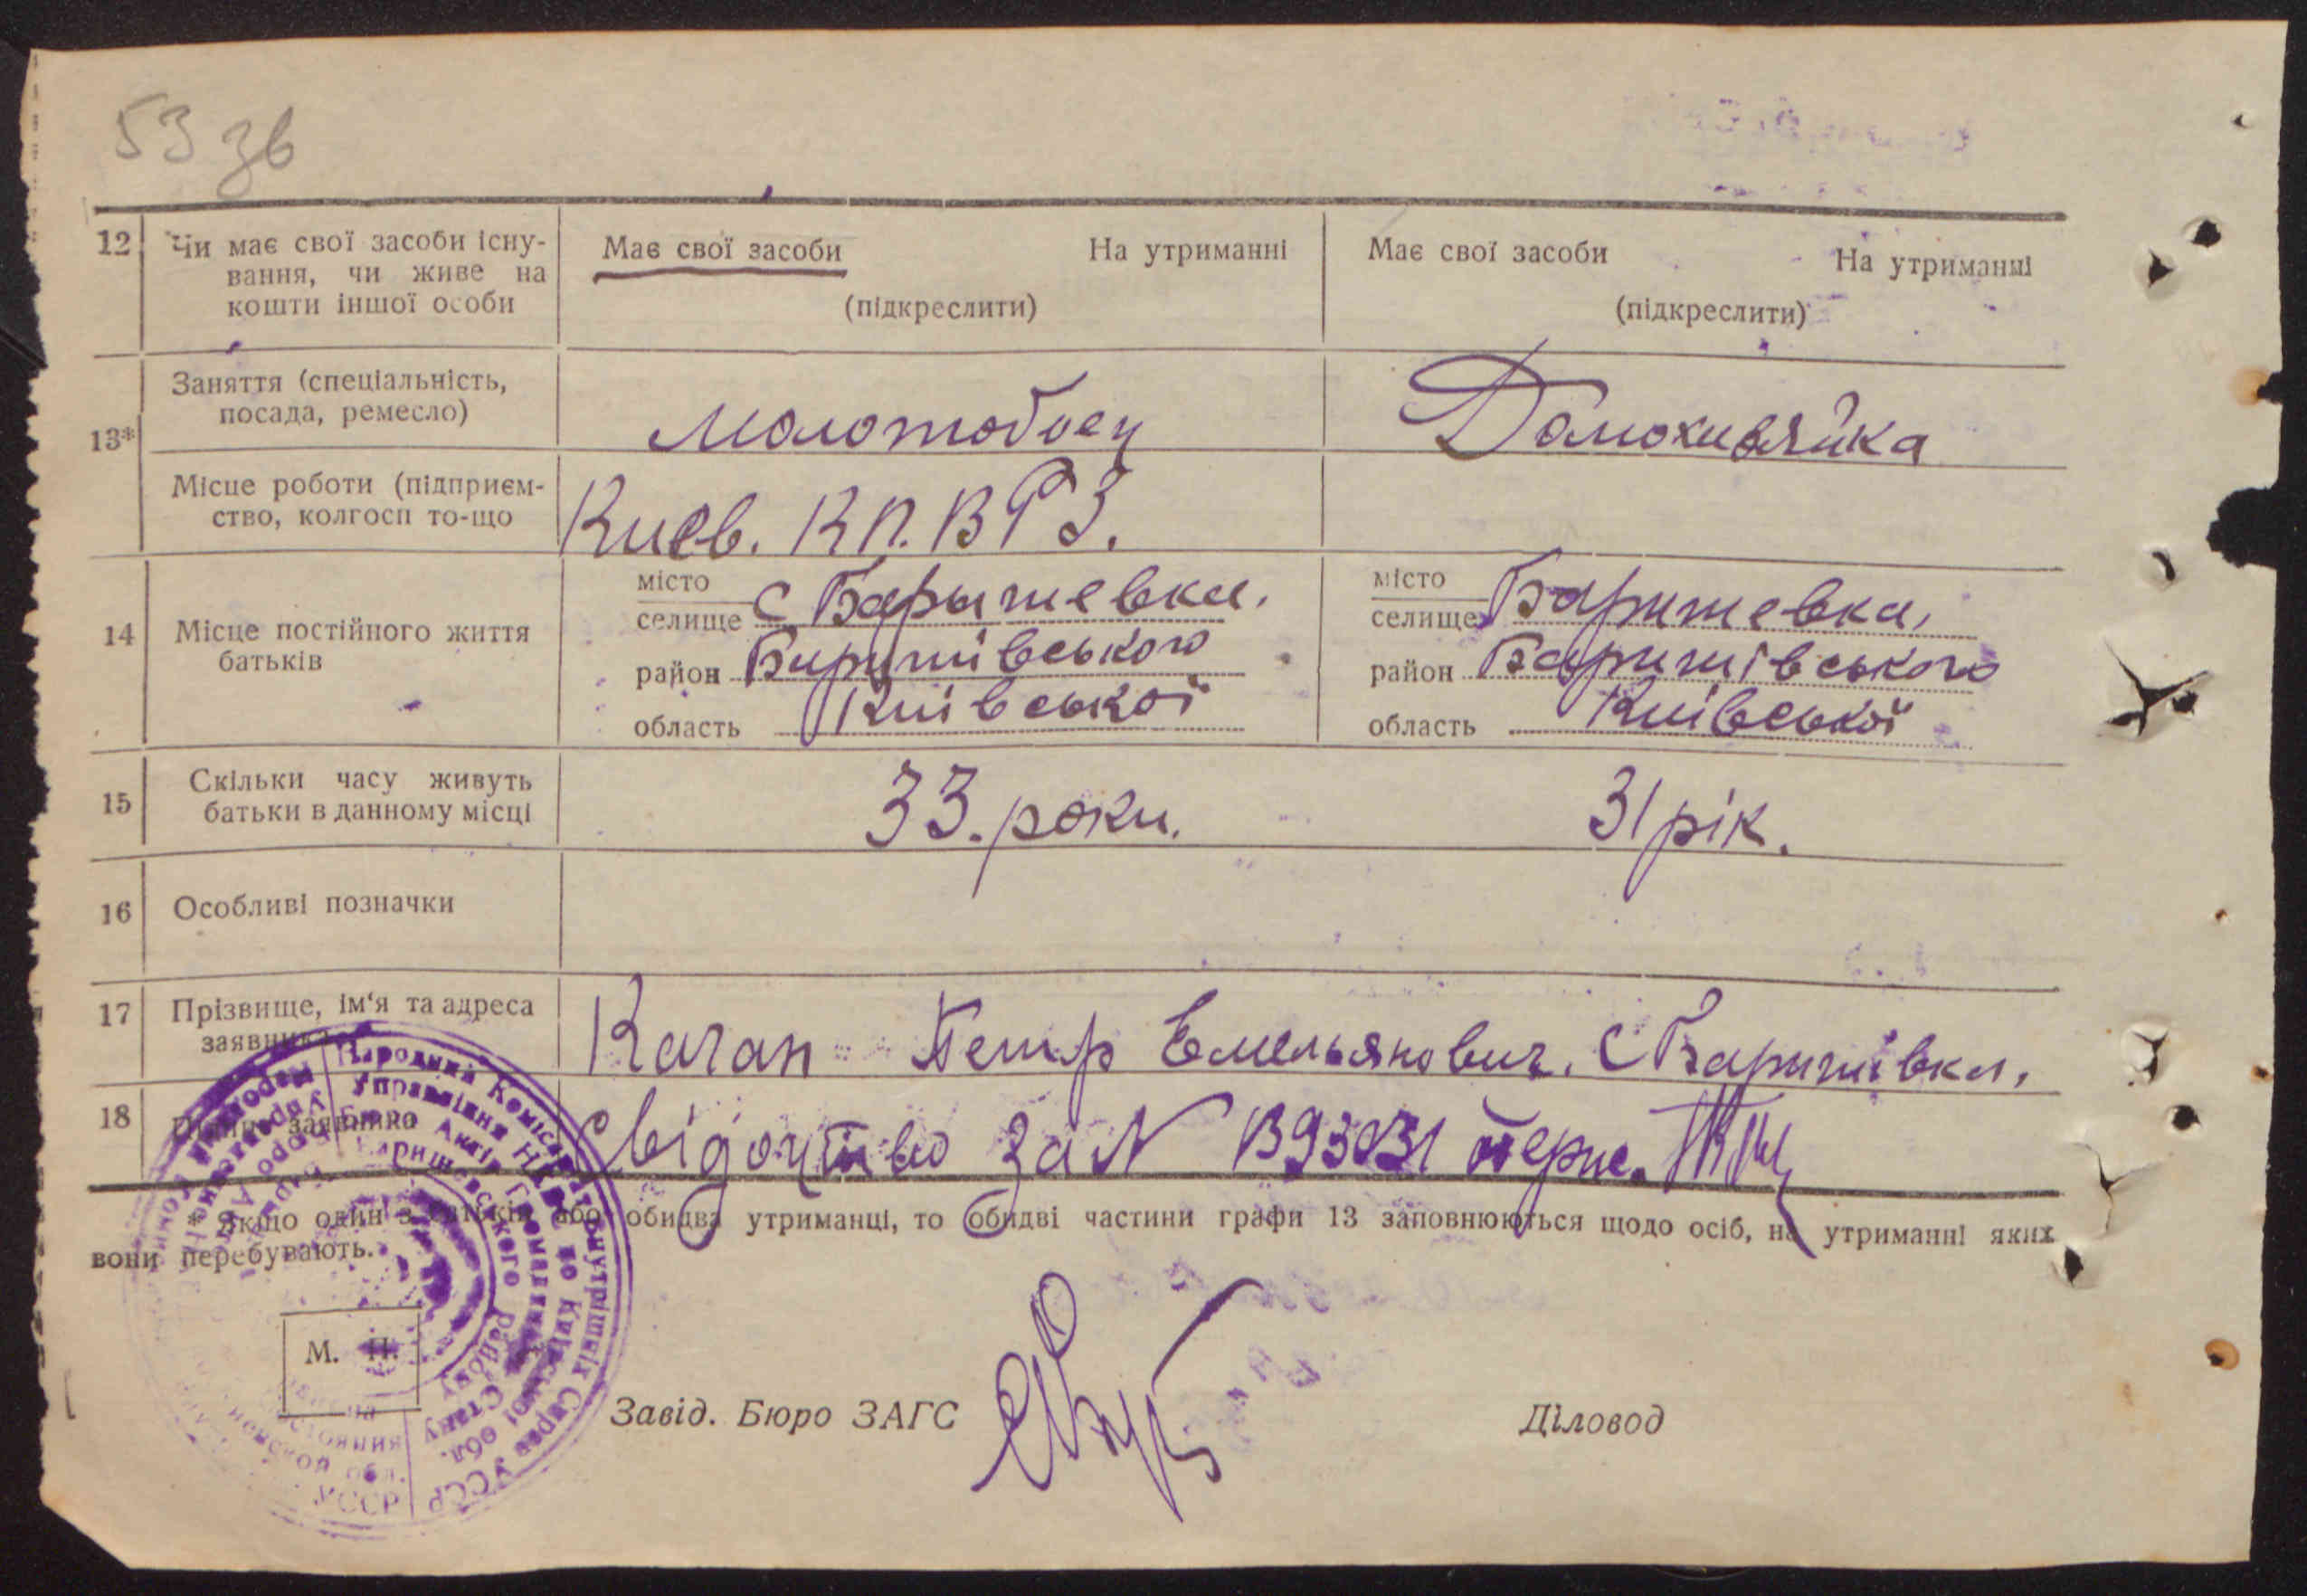 53 зв
12 Чи має свої засоби існу-
вання, чи живе на
кошти іншої особи
Має свої засоби На утриманні
(підкреслити)
Має свої засоби На утриманні
(підкреслити)
13*
Заняття (спеціальність,
посада, ремесло)
Молотобоец
Домохивяйка
Місце роботи (підприєм-
ство, колгосп то-що
Киев. КП. ВРЗ.
14 Місце постійного життя
батьків
місто
селище с Барышевка.
район Баришівського
область Київської
місто
селище Баришевка,
район Баришівського
область Київської
15 Скільки часу живуть
батьки в данному місці
33. роки.
31 рік.
16 Особливі позначки
17 Прізвище, ім‘я та адреса
заявника
Качан Петр Емельянович. С Баришівка,
18
Свідоцтво за № 139303
* Якщо один з батьків або обидва утриманці, то обидві частини графи 13 заповнюються щодо осіб, на утриманні яких
вони перебувають.
Народний Комісаріат Внутрішніх Справ УССР
Управління НКВС по Київській обл.
Бюро Актів Громадянського Стану
району
УССР
М. П.
Завід. Бюро ЗАГС
Діловод